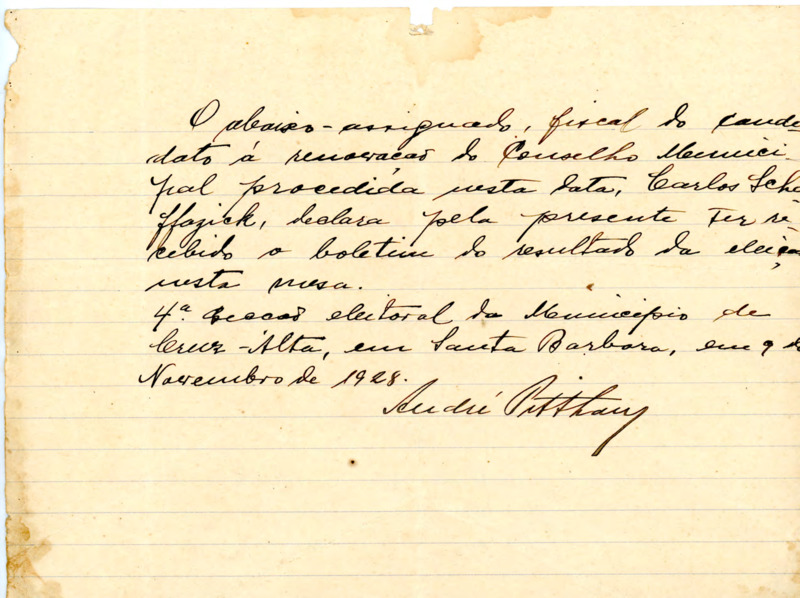 O abaixo-assignado, fiscal do candi-
dato á renovação do Conselho Munici-
pal procedida nesta data, Carlos Schä
ffazick, declara pela presente ter re-
cebido o boletim do resultado da eleição
nesta mesa.
4ª. secção eleitoral do Municipio de
Cruz-Alta, em Santa Barbara, em 9 de
Novembro de 1928.
André Pitthan